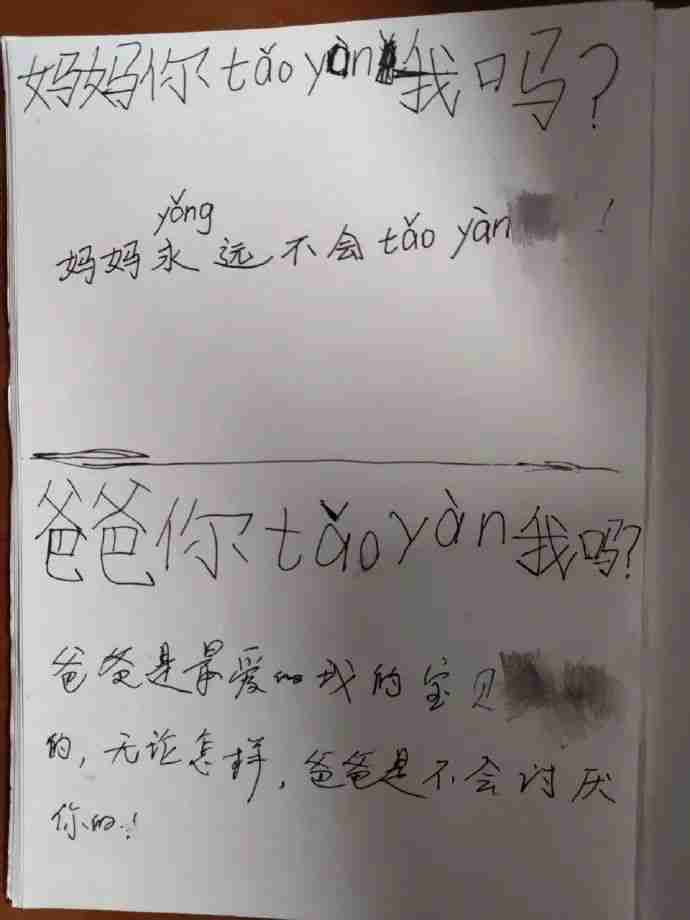 妈妈你tǎoyàn我吗?
yǒng
妈妈永远不会tǎo yàn !
爸爸你tǎoyàn我吗?
爸爸是最爱的我的宝贝
的,无论怎样,爸爸是不会讨厌
你的!